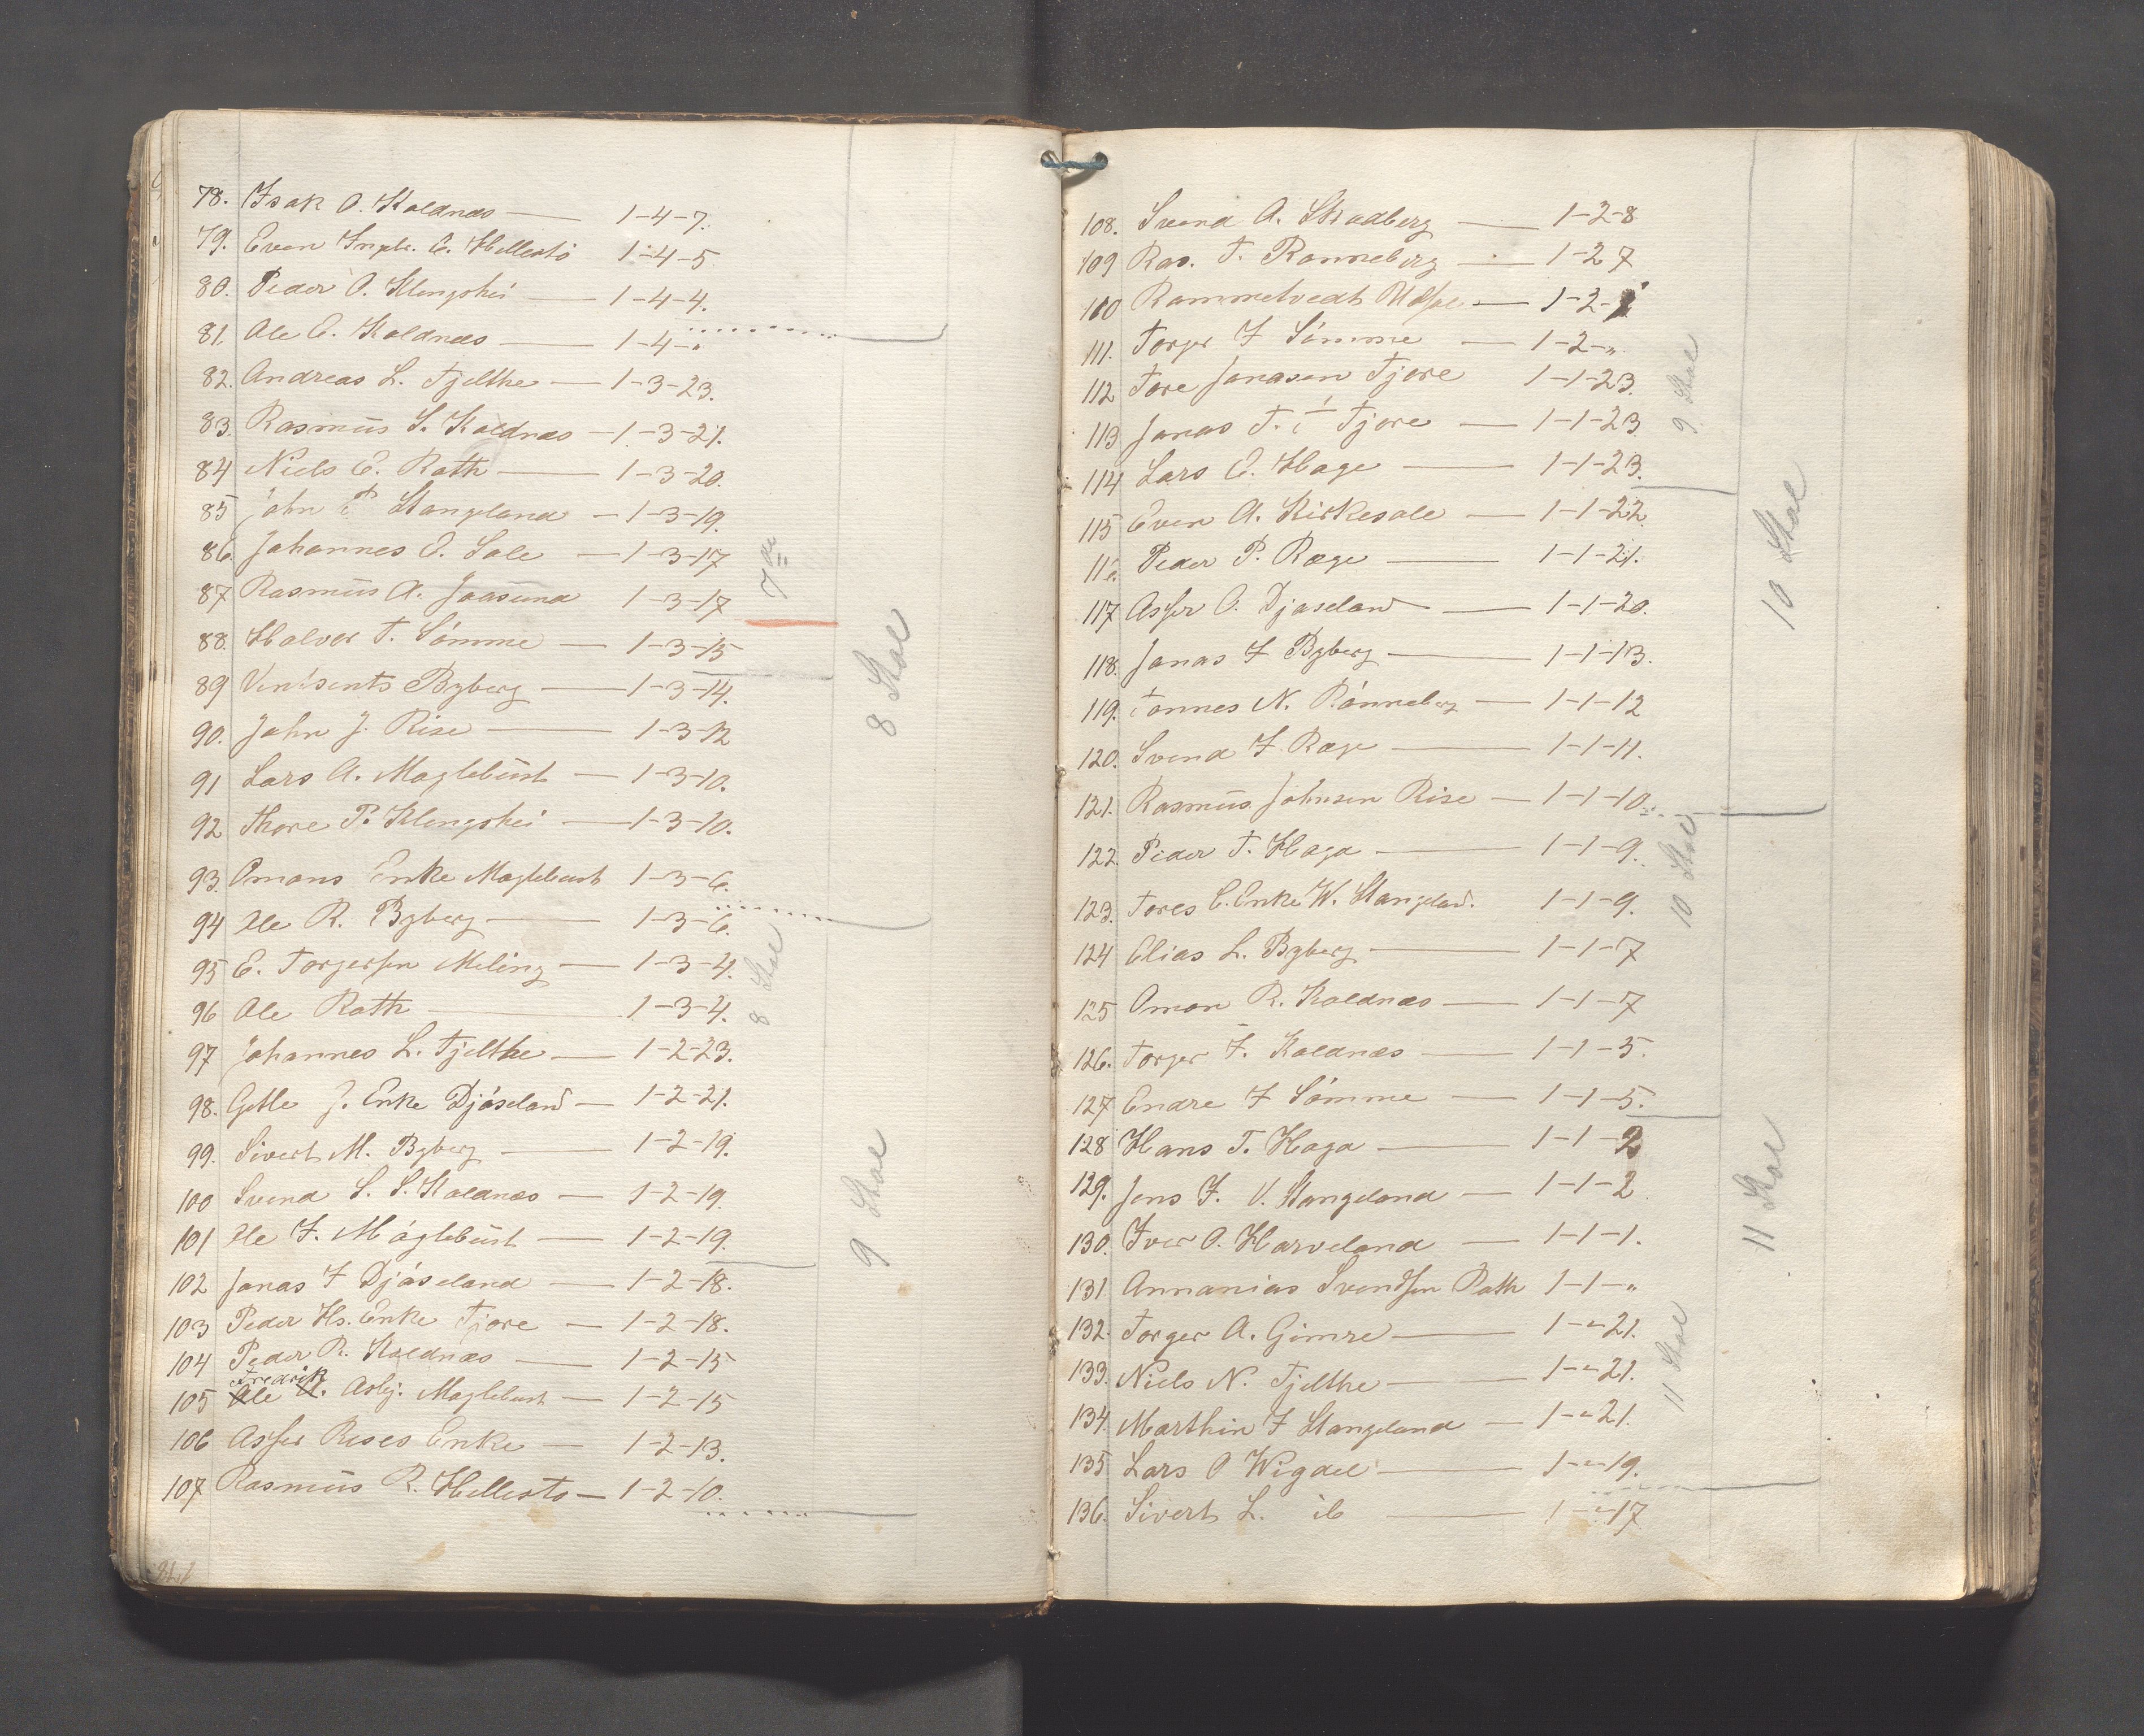 78. Isak O. Koldnæs — 1-4-7.
79. Even Inglr. E. Hellestö 1-4-5
80. Peder O. Klengshei — 1-4-4.
81. Ole E. Koldnæs — 1-4-"
82. Andreas L. Tjelthe — 1-3-23.
83. Rasmus S. Koldnæs — 1-3-21.
84 Niels E. Roth — 1-3-20.
85 John P Stangeland — 1-3-19.
86. Johannes E. Sole — 1-3-17
87 Rasmus A. Joasund 1-3-17
7de
88. Halvor T. Sömme — 1-3-15
89 Vinsents Bgberg — 1-3-14.
8 Stol
90. John J. Rise — 1-3-12
91 Lars A. Moglebust — 1-3-10.
92 Thore P. Klengshei — 1-3-10.
93. Omans Enke Moglebust 1-3-6.
94 Ole R. Bgberg — 1-3-6.
95 E. Torgersen Meling — 1-3-4.
8 Stol
96 Ole Roth — 1-3-4.
97 Johannes L. Tjelthe — 1-2-23.
98. Gitle J. Enke Djöseland — 1-2-21.
99. Sivert M. Bgberg — 1-2-19.
100 Svend S. S. Koldnæs — 1-2-19.
9 Stol
101 Ole I. Möglebust — 1-2-19.
102 Jonas I Djöseland — 1-2-18.
103 Peder Hs. Enke Tjore — 1-2-18.
104 Peder R. Koldnæs — 1-2-15
Fredrik
105 Ole A. Asbj. Moglebust — 1-2-15
106 Asser Rises Enke — 1-2-13.
107 Rasmus R. Hellesto — 1-2-10.
108. Svend A. Skadberg — 1-2-8
109 Ras. T. Ronneberg — 1-2 7
110 — 1-2-
111. Torger I Sömme — 1-2-"
112 Tore Jonasen Tjore 1-1-23.
9 Stol
113 Jonas T. i Tjore — 1-1-23
114 Lars E. Hage — 1-1-23.
115 Even A. Kirkesole — 1-1-22.
10 Stol
116. Peder P. Rege — 1-1-21.
117 Asser O. Djoseland — 1-1-20.
118. Jonas I Bgberg — 1-1-13.
119. Tonnes N. Rönneberg — 1-1-12
120. Svend I. Rege — 1-1-11.
121. Rasmus Johnsen Rise — 1-1-10.
122. Peder T. Haga — 1-1-9.
10 Stol
123. Tores E. Enke W. Stangeland. 1-1-9.
124 Elias L. Bgberg — 1-1-7
125 Omon R. Koldnæs — 1-1-7
126. Torger T. Koldnæs — 1-1-5.
127 Endre I Sömme — 1-1-5.
128 Hans T. Haga — 1-1-2
129. Jens I. V. Stangeland — 1-1-2
11 Stol
130. Iver O. Harveland — 1-1-1.
131 Annanias Svendsen Roth 1-1-"
132. Torger A. Gimre — 1-"-21.
133. Niels N. Tjelthe — 1-"-21.
11 Stol
134. Marthin I Stangeland — 1-"-21.
135 Lars O Wigdel — 1-"-19.
136. Sivert L. ib — 1-"-17